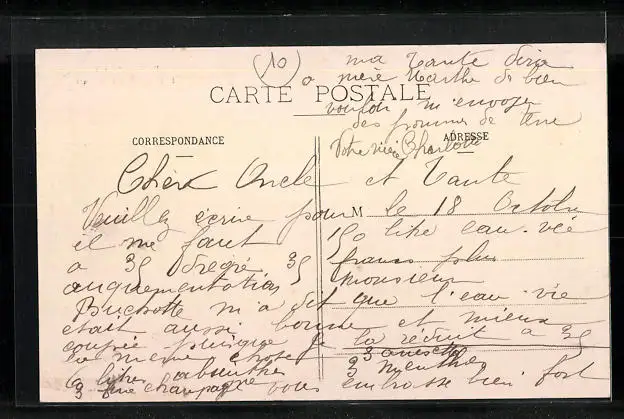 (10)
ma Tante dira
a mère Marthe de bien
CARTE POSTALE
vouloir m'envoyer
des pommes de terre
Votre nièce Charlotte
CORRESPONDANCE
ADRESSE
Chèrs Oncle et Tante
Veuillez écrire pour M le 18 Octobre
il me faut 150 litre eau-vie
a 35 degré 35 francs plus
augmentation monsieur
Buchotte m'a dit que l'eau-vie
était aussi bonne et mieux
coupée puisque je la réduit a 35
la même chose 3 anisette
6 litres absinthe 3 menthe
3 fine champagne vous embrasse bien fort